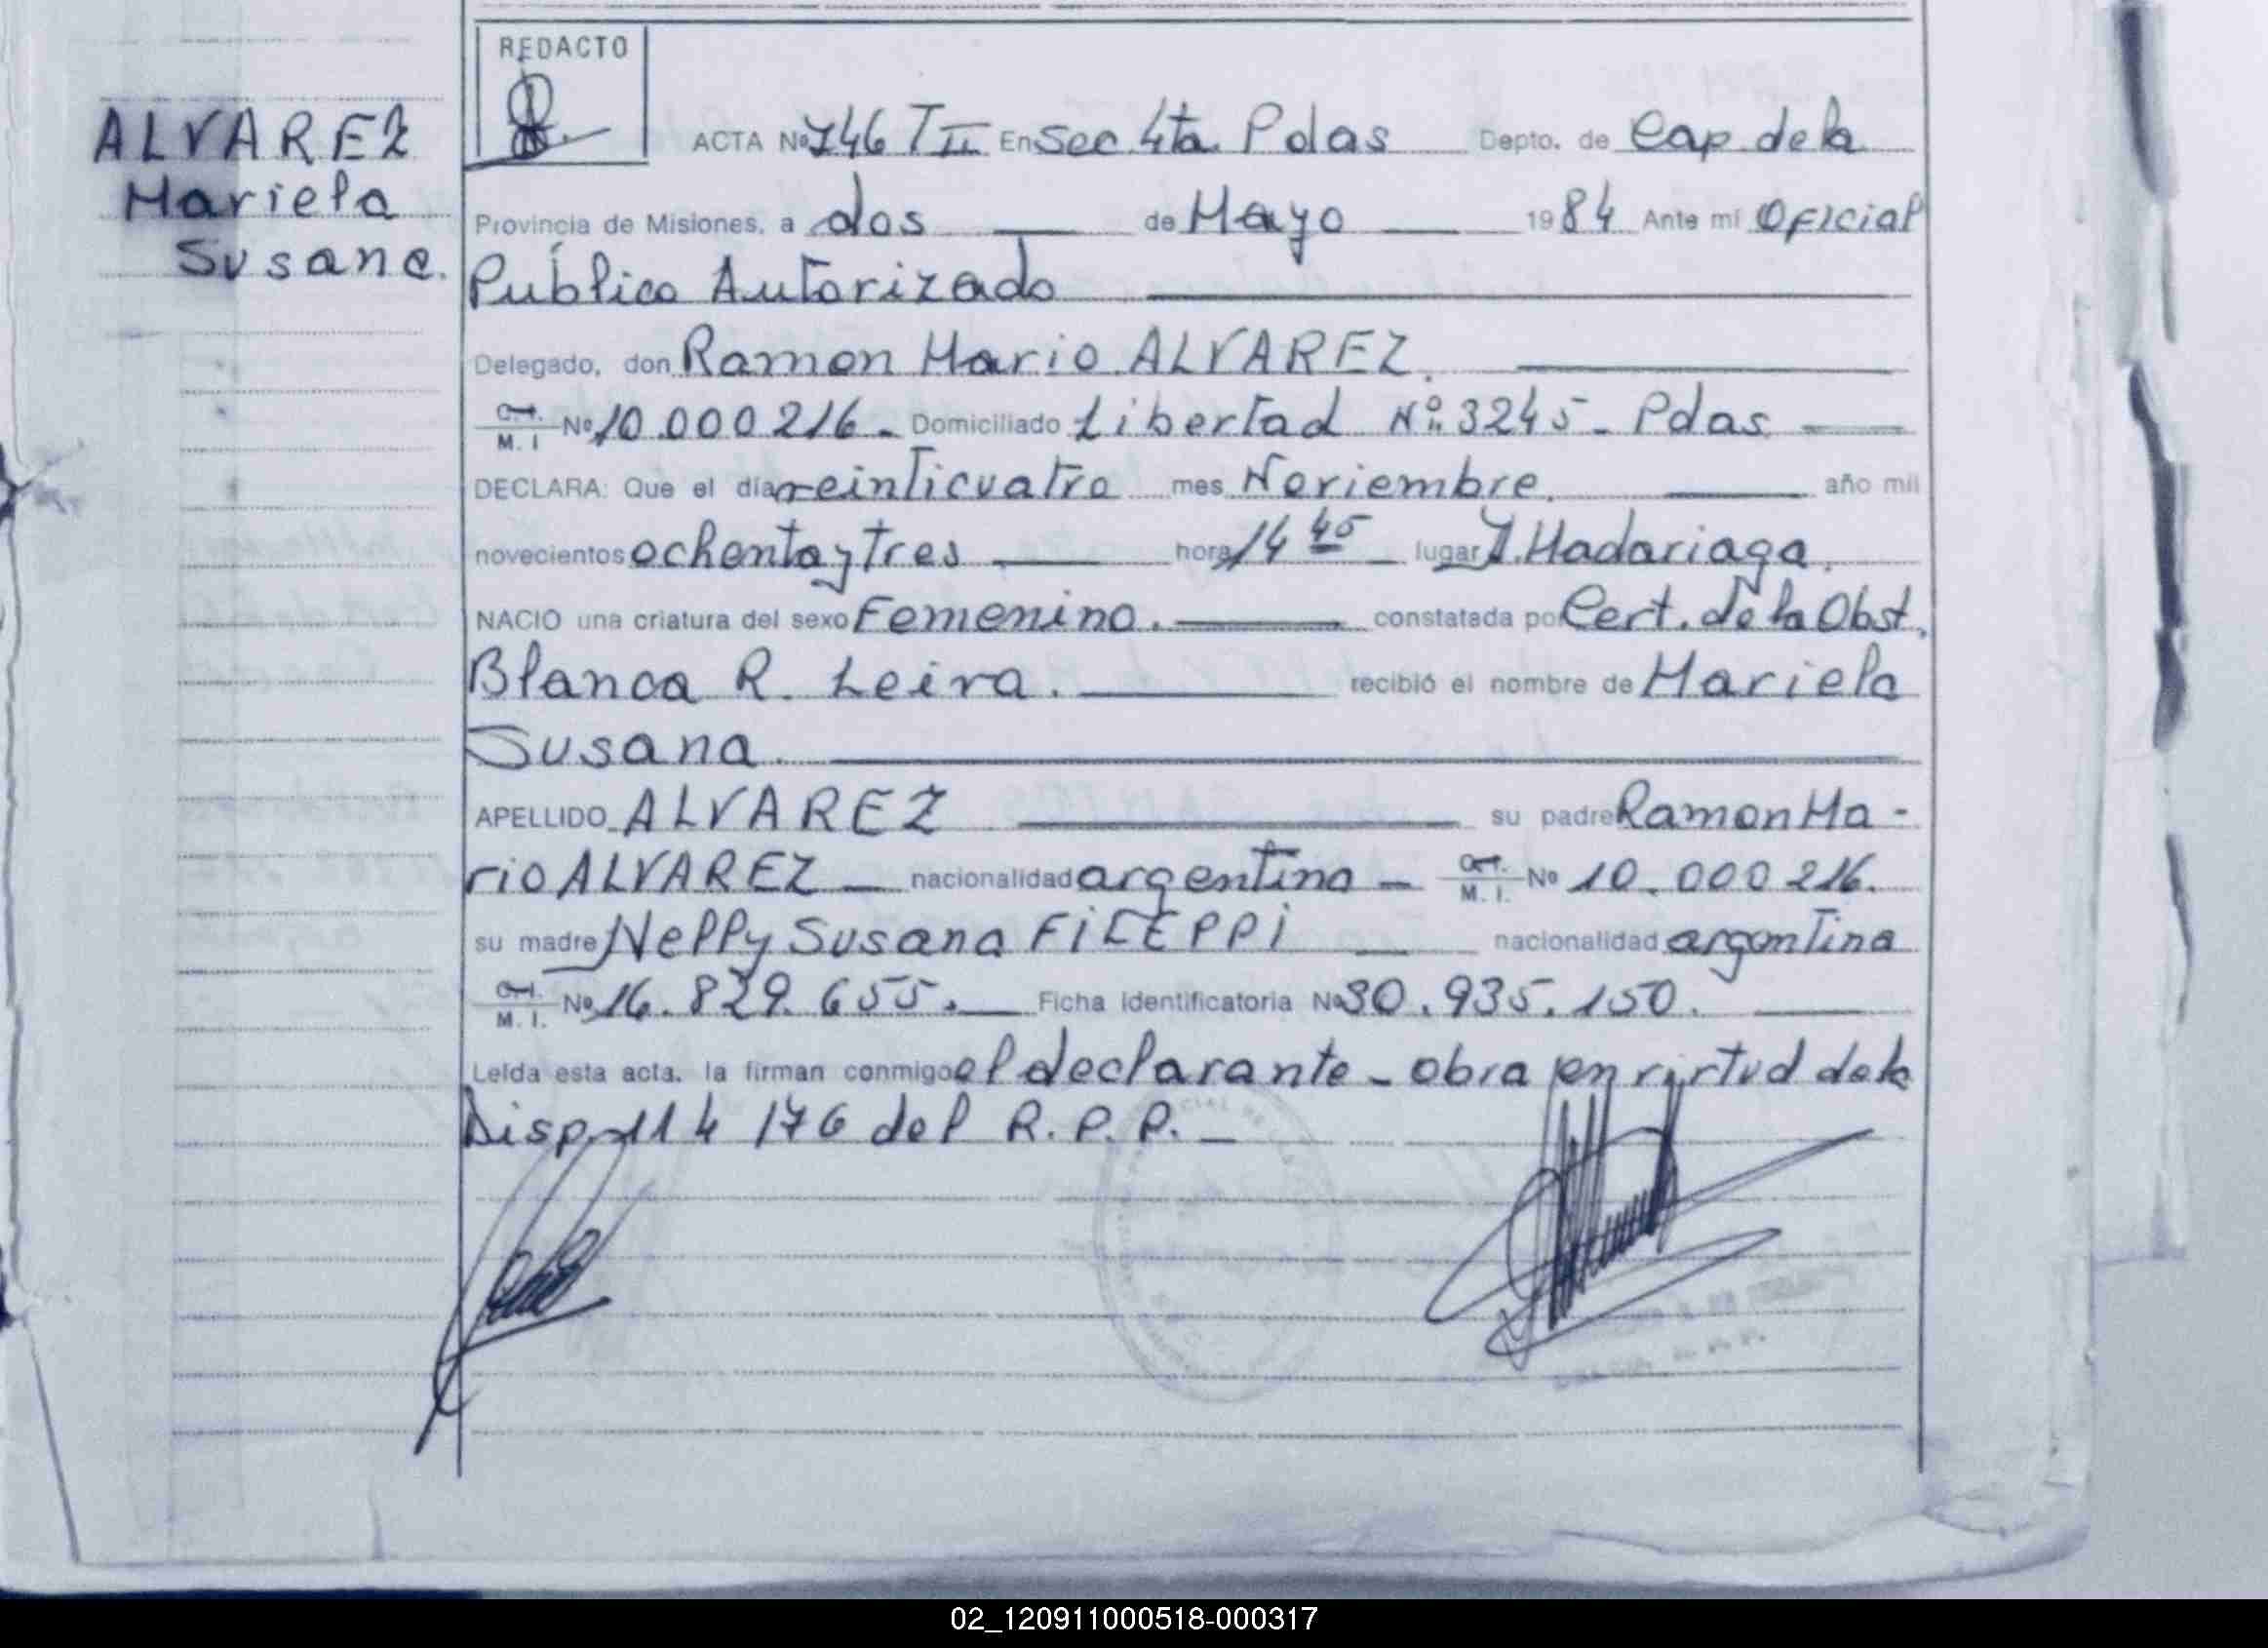 REDACTO
ALVAREZ
Mariela
Susana.
ACTA Nº 746 TII En Sec 4ta. Pdas Depto. de Cap. de la
Provincia de Misiones, a dos de Mayo 1984 Ante mi Oficial
Público Autorizado
Delegado, don Ramon Mario ALVAREZ.
C.I. M. I Nº 10.000216. Domiciliado Libertad Nº 3245 - Pdas
DECLARA: Que el día veinticuatro mes Noviembre. año mil
novecientos ochenta y tres hora 14 45 lugar Madariaga.
NACIO una criatura del sexo Femenino. constatada por Cert. de la Obst.
Blanca R. Leiva. recibió el nombre de Mariela
Susana.
APELLIDO ALVAREZ su padre Ramon Ma -
rio ALVAREZ - nacionalidad argentino - C.I. M. I. Nº 10.000216.
su madre Nelly Susana nacionalidad argentina
C.I. M. I. Nº 16.829.655. Ficha identificatoria Nº 30.935.150.
Leída esta acta, la firman conmigo el declarante - obra en virtud de la
Disp. 114/76 del R.P.P. -
02_120911000518-000317